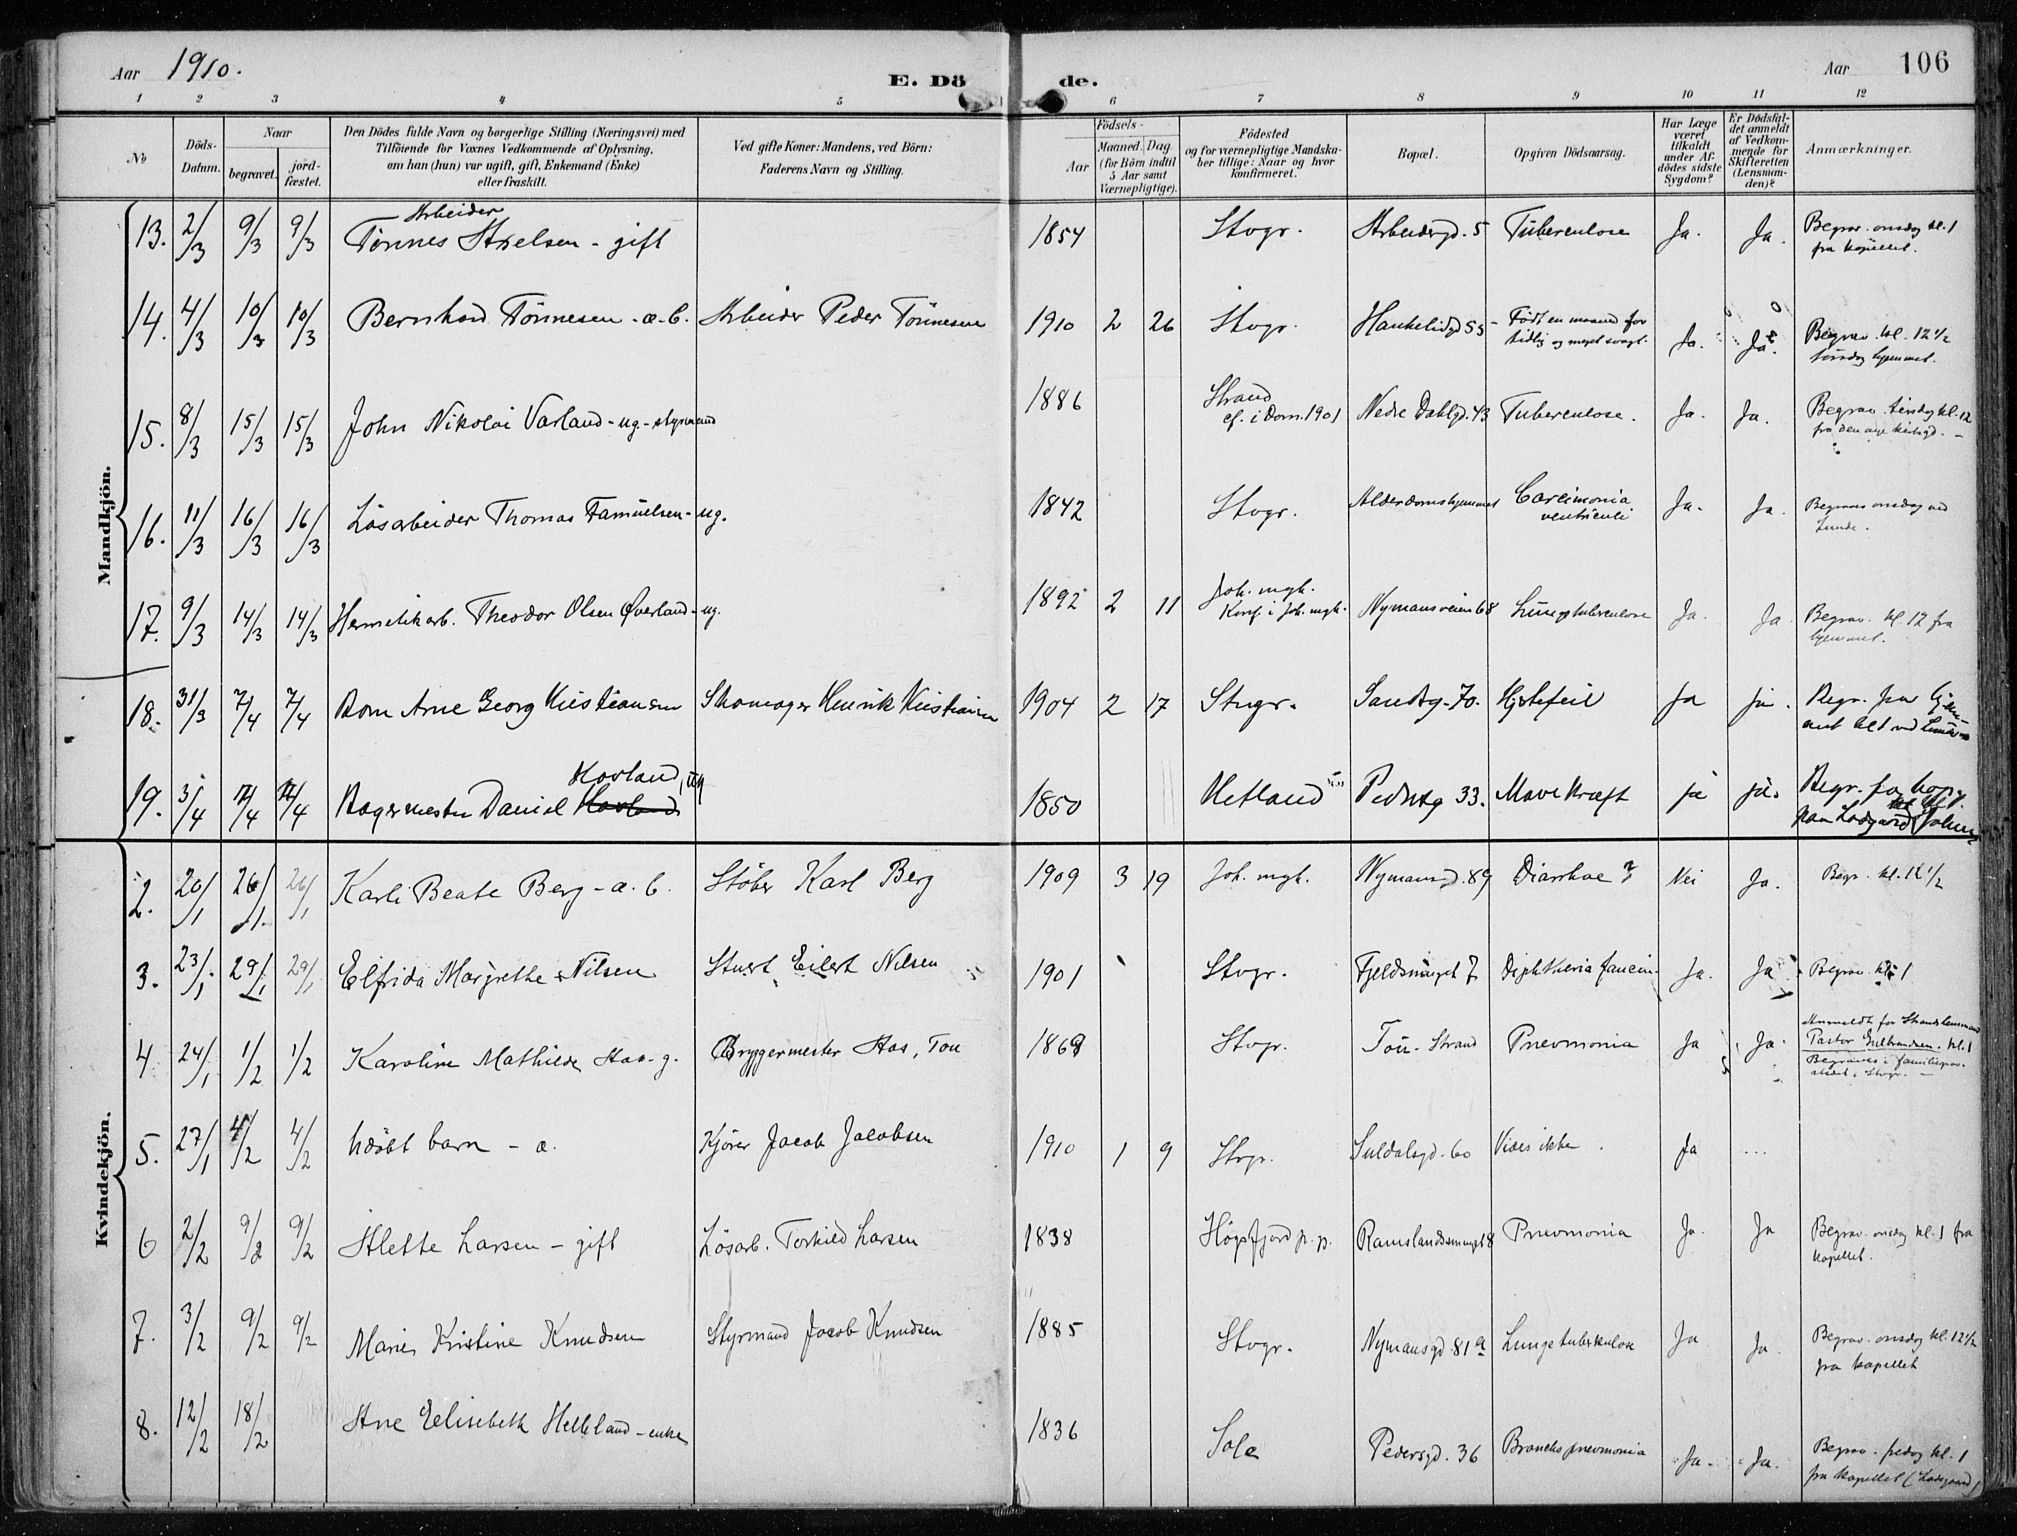 Aar 1910. E. Dö de. Aar 106
1 2 3 4 5 6 7 8 9 10 11 12
№
Döds-
Datum.
Naar
begravet.
jord-
fæstet.
Den Dödes fulde Navn og borgerlige Stilling (Næringsvei) med
Tilföiende for Voxnes Vedkommende af Oplysning,
om han (hun) var ugift, gift, Enkemand (Enke)
eller fraskilt.
Ved gifte Koner: Mandens, ved Börn:
Faderens Navn og Stilling.
Födsels-
Aar
Maaned. Dag.
(for Börn indtil
5 Aar samt
Værnepligtige).
Födested
og for værnepligtige Mandska-
ber tillige: Naar og hvor
konfirmeret.
Bopæl.
Opgiven Dödsaarsag.
Har Læge
været
tilkaldt
under Af-
dödes sidste
Sygdom?
Er Dödsfal-
det anmeldt
af Vedkom-
mende for
Skifteretten
(Lensman-
den)?
Anmærkninger.
Mandkjön.
Arbeider
13. 2/3 9/3 9/3 Tönnes Axelsen - gift 1854 Stvgr. Arbeidergd. 5 Tuberculose Ja. Ja. Begrav. onsdag kl. 1
fra kapellet.
14. 4/3 10/3 10/3 Bernhard Tönnesen - æ. b. Arbeider Peder Tönnesen 1910 2 26 Stvgr. Haukeligd 53 - Født en maaned for
tidlig og meget svagt. Ja. Ja. Begrav. kl. 12 1/2
hjemmet.
15. 8/3 15/3 15/3 John Nikolai Varland - ug. - styrmand 1886 Strand
cf. i Dom. 1901 Nedre Dahlgd. 43 Tuberculose. Ja. Ja. Begrav. tirsdag kl. 12
fra den nye kirkegd. -
16. 11/3 16/3 16/3 Lösarbeider Thomas Samuelsen - ug. 1842 Stvgr. Alderdomshjemmet Carcimonia
ventriculi Ja. Ja. Begraves onsdag ved
Lunde.
17. 9/3 14/3 14/3 Hermetikarb. Theodor Olsen Øverland - ug. 1892 2 11 Joh. mgh.
Konf. i Joh. mgh. Nymansveien 68 Lungetuberculose Ja. Ja Begrav. kl. 12 fra
hjemmet.
18. 31/3 7/4 7/4 Barn Arne Georg Kristiansen Skomager Henrik Kristiansen 1904 2 17 Stvgr. Sandsg. 70. Hjertefeil Ja ja. Begr. fra hjem-
met kl 1 ved
Hovland, ug
19. 3/4 7/4 7/4 Bagermester Daniel 1850 Hetland Pedersg 33. Mavekræft ja ja. Begr. fra
Kvindekjön.
2. 20/1 26/1 26/1 Karli Beate Berg - æ. b. Støber Karl Berg 1909 3 19 Joh. mgh. Nymansgd. 89 Diarrhoe ? Nei Ja. Begr. kl. 12 1/2
3. 23/1 29/1 29/1 Elfrida Margrethe Nilsen Stuert Eilert Nilsen 1901 Stvgr. Fjeldsmuget 7 Diphtheria faucium Ja. Ja Begrav. kl. 1
4 24/1 1/2 1/2 Karoline Mathilde Aas - g. Bryggermester Aas, Tou 1868 Stvgr. Tou - Strand Pneumonia Ja Ja. Anmeldt for Strands lensmand
Pastor Gulbrandsen. kl. 1
Begraves i familiegrav-
stedet i Stvgr. -
5. 27/1 4/2 4/2 Udöbt barn - æ. Kjører Jacob Jacobsen 1910 1 9 Stvgr. Suldalsgd. 60 Vides ikke. Ja ...
6 2/2 9/2 9/2 Alette Larsen - gift Lösarb. Torkild Larsen 1838 Högsfjord p. g. Ramslandsmuget 8 Pneumonia Ja. Ja Begrav. onsdag kl. 1 fra
kapellet.
7. 3/2 9/2 9/2 Marie Kristine Knudsen Styrmand Jacob Knudsen 1885 Stvgr. Nymansgd 81a Lungetuberkulose Ja Ja. Begrav. onsdag kl. 12 1/2
fra kapellet
8. 12/2 18/2 Ane Elisebeth Helleland - enke 1836 Sole Pedersgd. 36 Bronchopneumonia Ja. Ja. Begrav. fredag kl. 1
fra kapellet (Ladegaard)